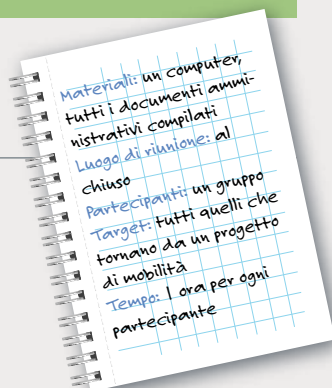 Materiali: un computer,
tutti i documenti ammi-
nistrativi compilati
Luogo di riunione: al
chiuso
Partecipanti: un gruppo
Target: tutti quelli che
tornano da un progetto
di mobilità
Tempo: 1 ora per ogni
partecipante